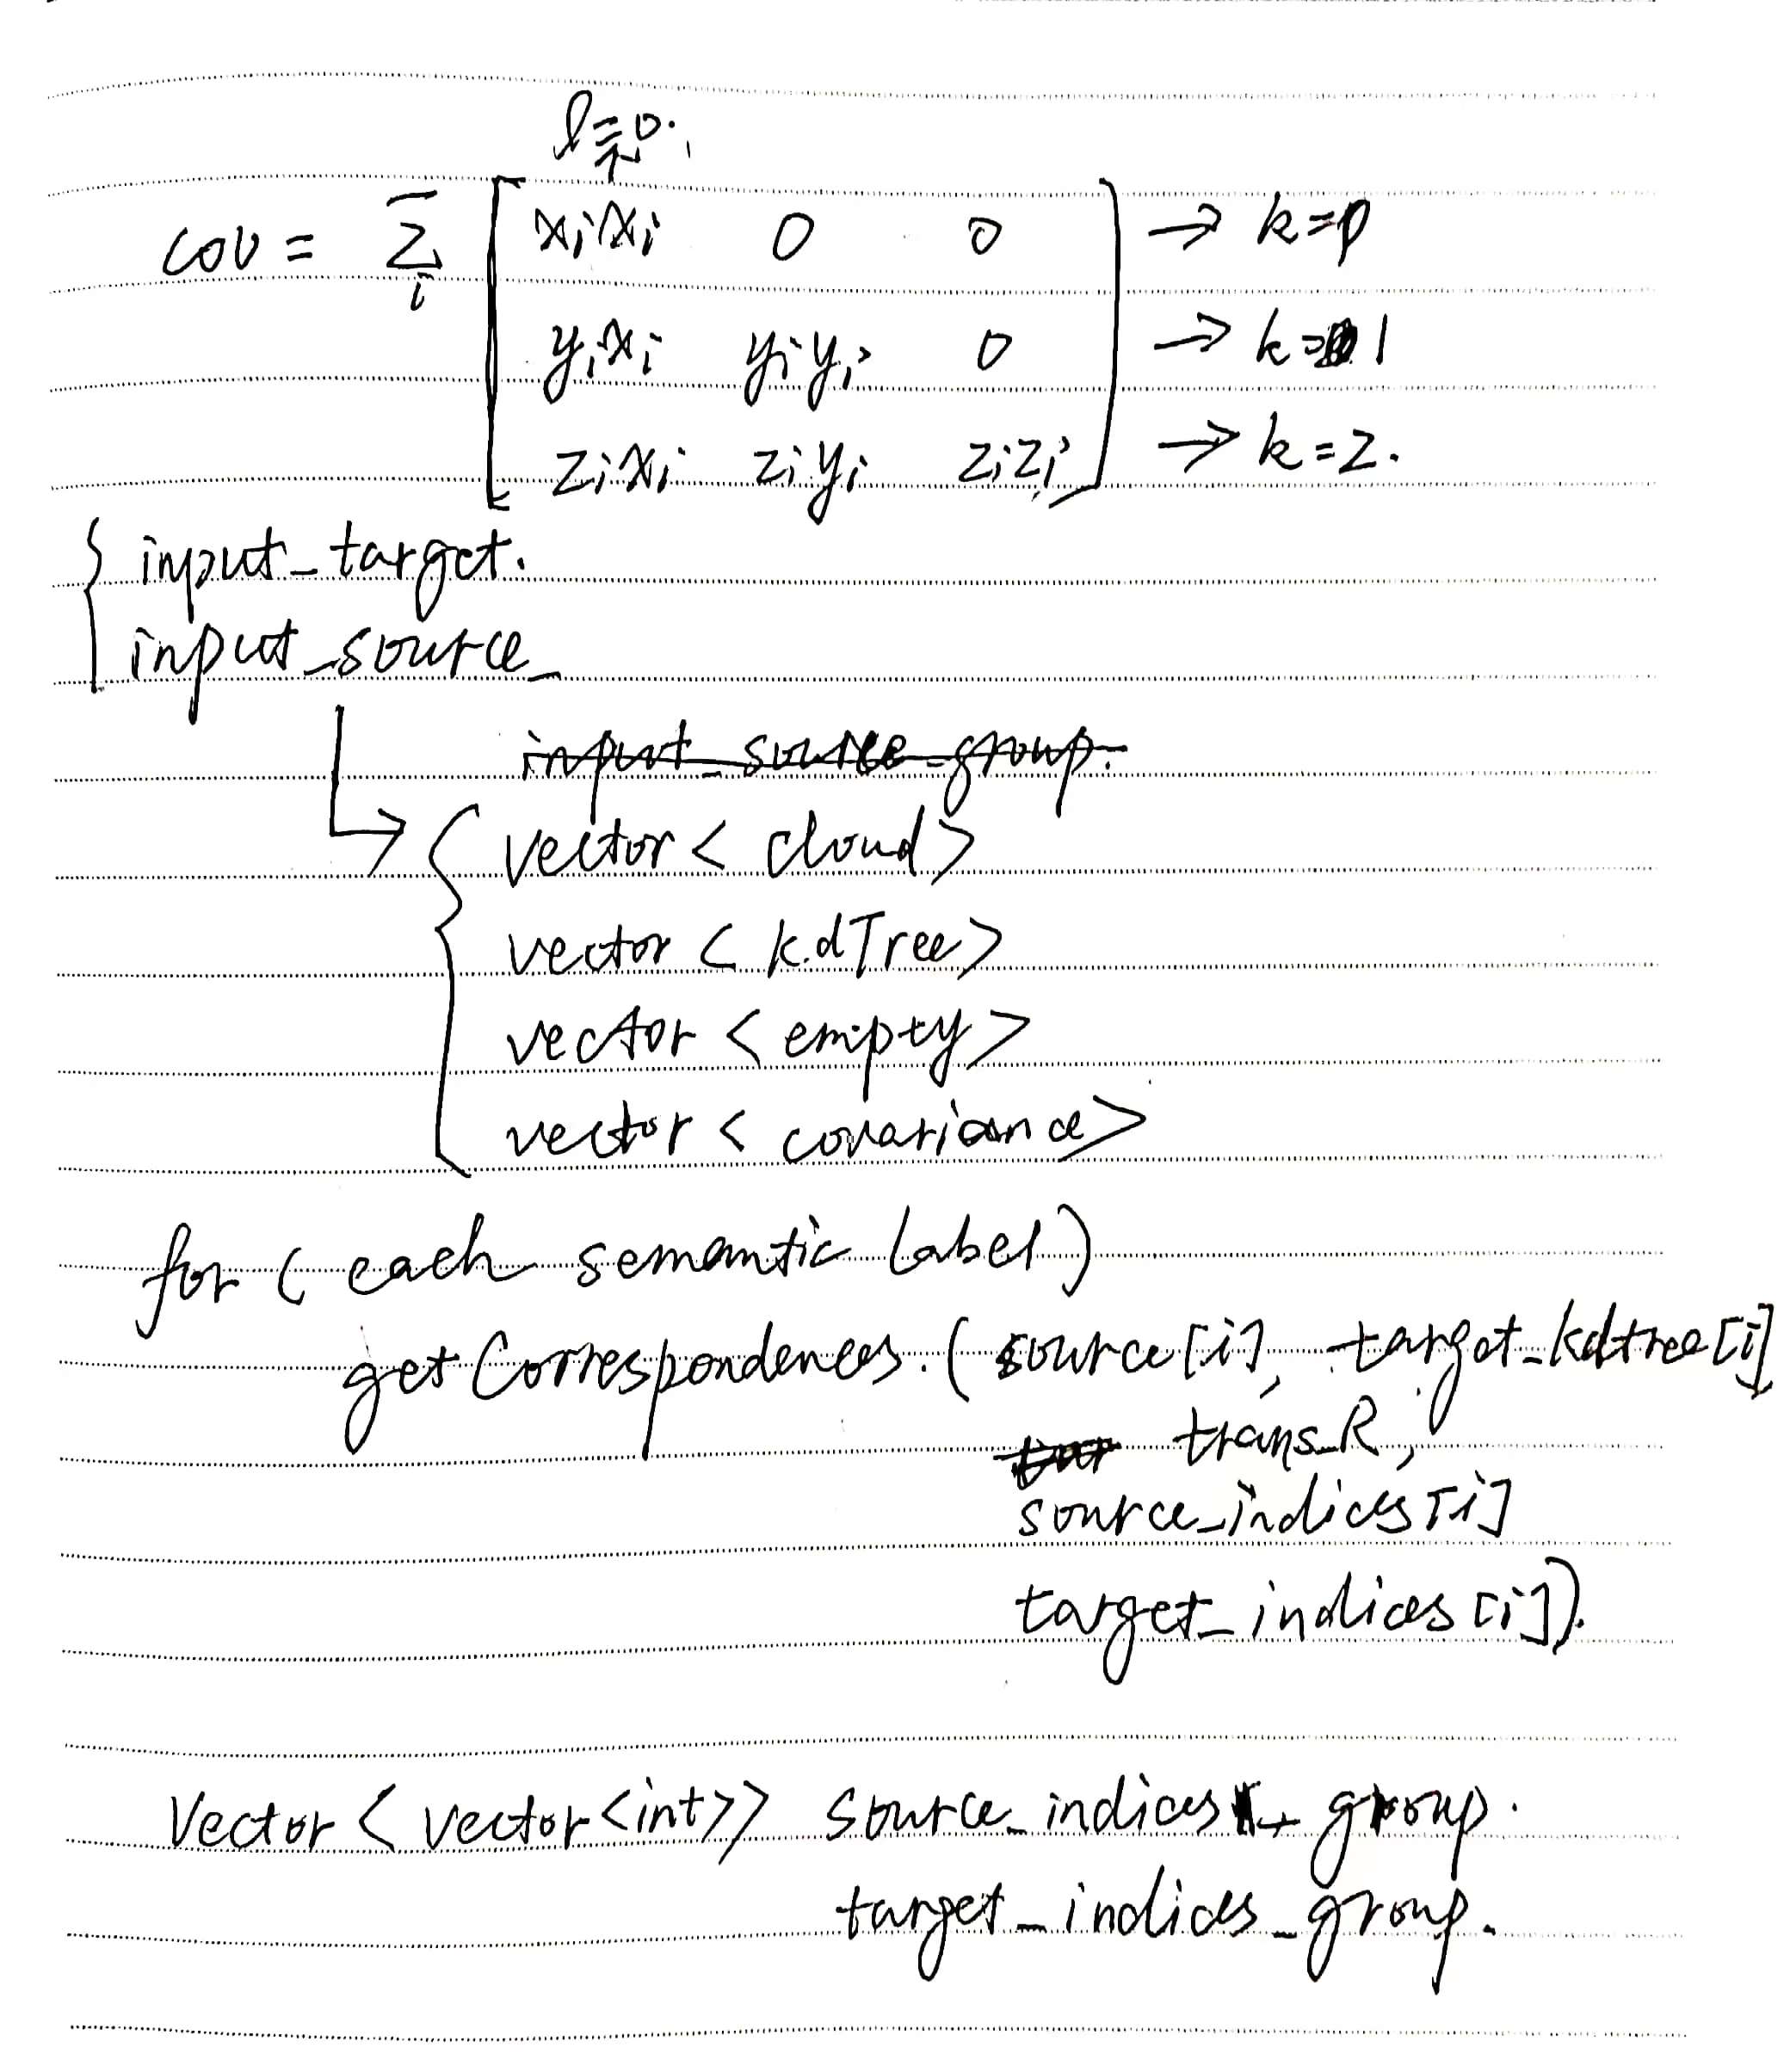 l=0.
cov = Σ_i [ x_i x_i 0 0 ] → k=0
[ y_i x_i y_i y_i 0 ] → k=1
[ z_i x_i z_i y_i z_i z_i ] → k=2.
{ input_target.
input_source_
input_source_group.
↳ { vector < cloud>
vector < kdTree>
vector < empty>
vector < covariance>
for ( each semantic label )
getCorrespondences. ( source[i], target_kdtree[i]
trans_R,
source_indices[i]
target_indices[i]).
Vector < vector <int>> source_indices_group.
target_indices_group.